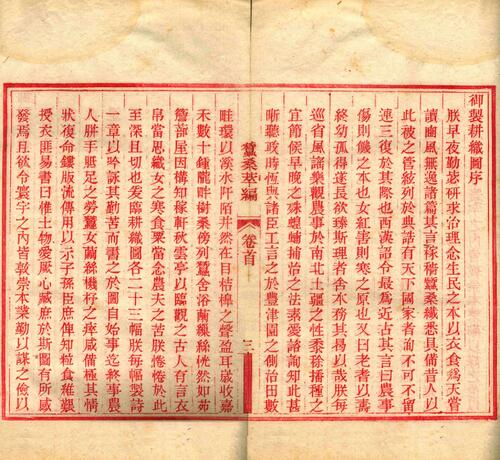 御製耕織圖序
朕早夜勤毖研求治理念生民之本以衣食為天嘗
讀豳風無逸諸篇其言稼穡蠶桑纖悉具備昔人以
此被之管絃列於典誥有天下國家者洵不可不留
連三復於其際也西漢詔令最為近古其言曰農事
傷則饑之本也女紅害則寒之原也又曰老者以壽
終幼孤得遂長欲臻斯理者舍本務其曷以哉朕每
巡省風謠樂觀農事於南北土疆之性黍稌播種之
宜節候早晚之殊蝗蝻捕治之法素愛諮詢知此甚
晰聽政時恆與諸臣工言之於豐澤園之側治田數
蠶桑萃編
卷首
三
畦環以溪水阡陌井然在目桔槔之聲盈耳歲收嘉
禾數十鍾隴畔樹桑傍列蠶舍浴繭繅絲恍然如茆
簷蔀屋因構知稼軒秋雲亭以臨觀之古人有言衣
帛當思織女之寒食粟當念農夫之苦朕惓惓於此
至深且切也爰繪耕織圖各二十三幅朕每幅製詩
一章以吟詠其勤苦而書之於圖自始事迄終事農
人胼手胝足之勞蠶女繭絲機杼之瘁咸備極其情
狀復命鏤版流傳用以示子孫臣庶俾知粒食維艱
授衣匪易書曰惟土物愛厥心臧庶於斯圖有所感
發焉且欲令寰宇之內皆敦崇本業勤以謀之儉以